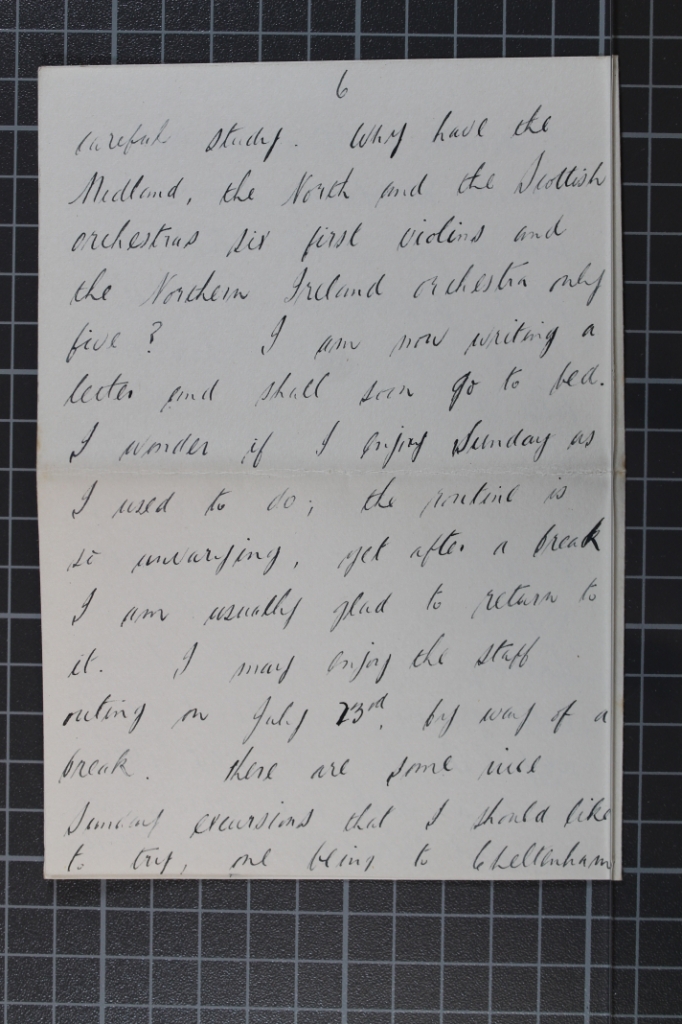 6
careful study. Why have the
Midland, the North and the Scottish
orchestras six first violins and
the Northern Ireland orchestra only
five? I am now writing a
letter and shall soon go to bed.
I wonder if I enjoy Sunday as
I used to do; the routine is
so unvarying, yet after a break
I am usually glad to return to
it. I may enjoy the staff
outing on July 23rd, by way of a
break. There are some nice
Sunday excursions that I should like
to try, one being to Cheltenham